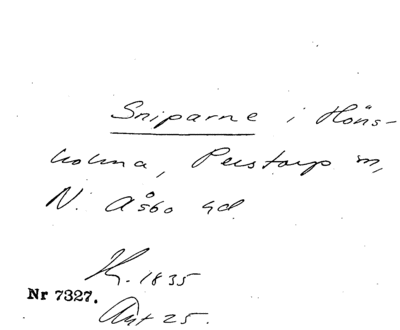 Sniparne i Höns-
holma, Perstorp m,
N. Åsbo hd
K. 1835
Nr 7327.
Ant 25.